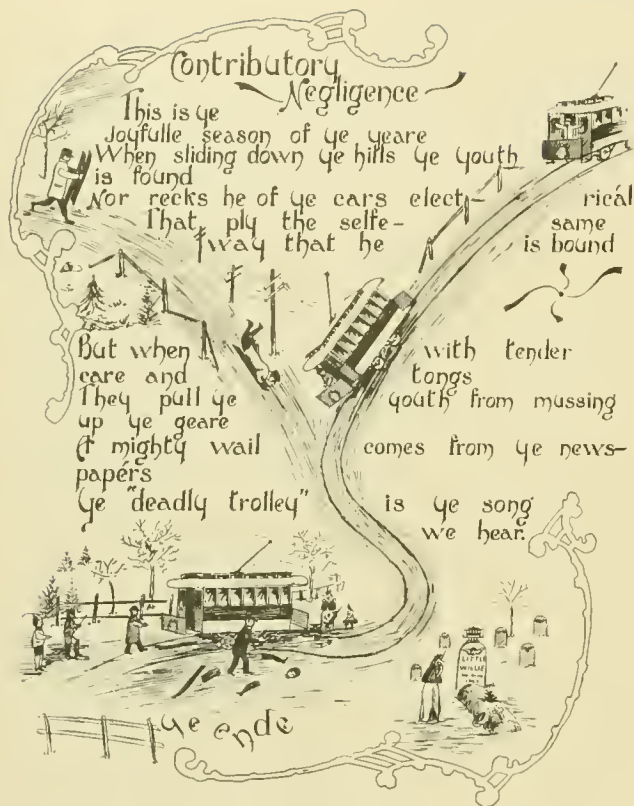 Contributory
Negligence
This is ye
Joyfulle season of ye yeare
When sliding down ye hills ye youth
is found
Nor recks he of ye cars elect- ricál
That ply the selfe- same
way that he is bound
But when with tender
care and tongs
They pull ye youth from mussing
up ye geare
A mighty wail comes from ye news-
papérs
Ye "deadly trolley" is ye song
we hear.
LITTLE
WILLIE
ye ende